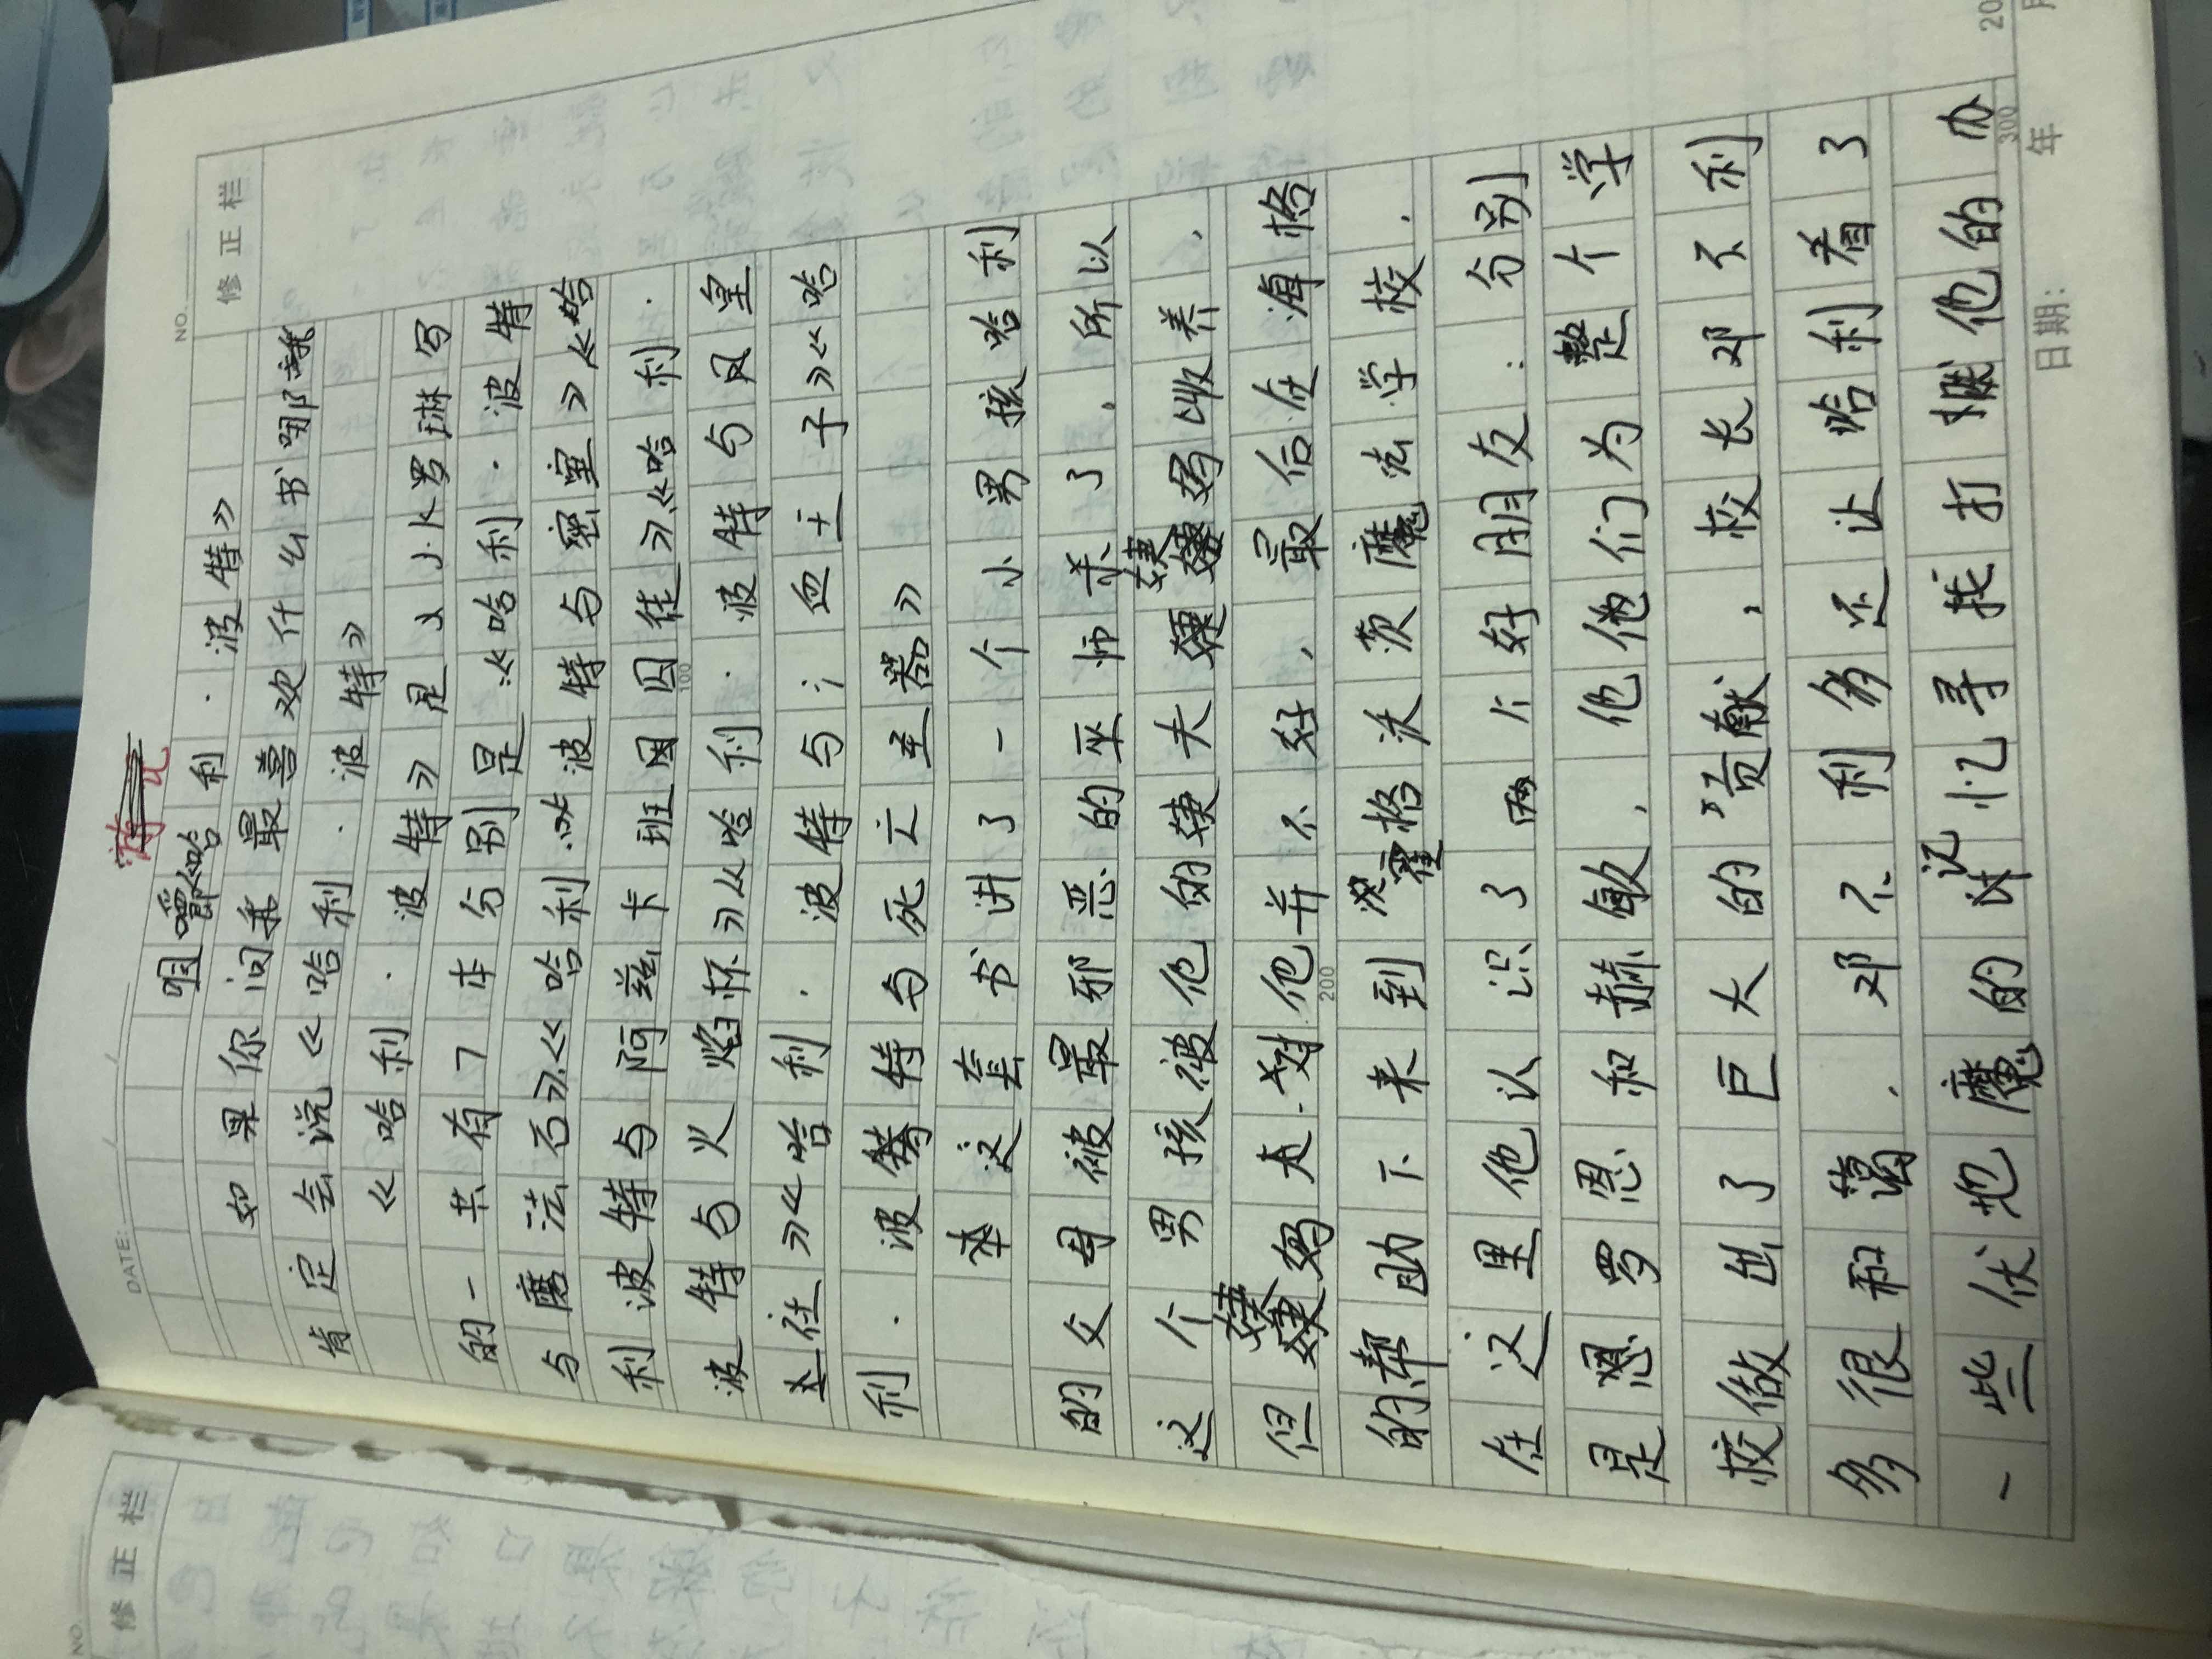 DATE: / /
NO.
修正栏
咀嚼《哈利·波特》
如果你问我最喜欢什么书哪我
肯定会说《哈利·波特》
《哈利·波特》是J·K罗琳写
的一共有7本分别是:《哈利·波特
与魔法石》《哈利·波特与密室》《哈
利波特与阿兹卡班囚徒》《哈利·
波特与火焰杯》《哈利·波特与凤皇
社》《哈利·波特与:血王子》《哈
利·波特与死亡圣器》
本套书讲了一个小男孩哈利
的父母被最邪恶的巫师杀了。所以
这个男孩被他的姨夫姨妈收养,
但姨妈夫对他并不好,最后在海格
的帮助下来到霍格沃茨魔法学校.
在这里他认识了两个好朋友:分别
是恩罗恩和赫敏,他他们为整个学
校做出了巨大的贡献,校长邓不利
多很和蔼,邓不利多还让哈利看了
一些伏地魔的记忆寻找打撇他的办
200
300
日期: 年 月
NO.
修正栏